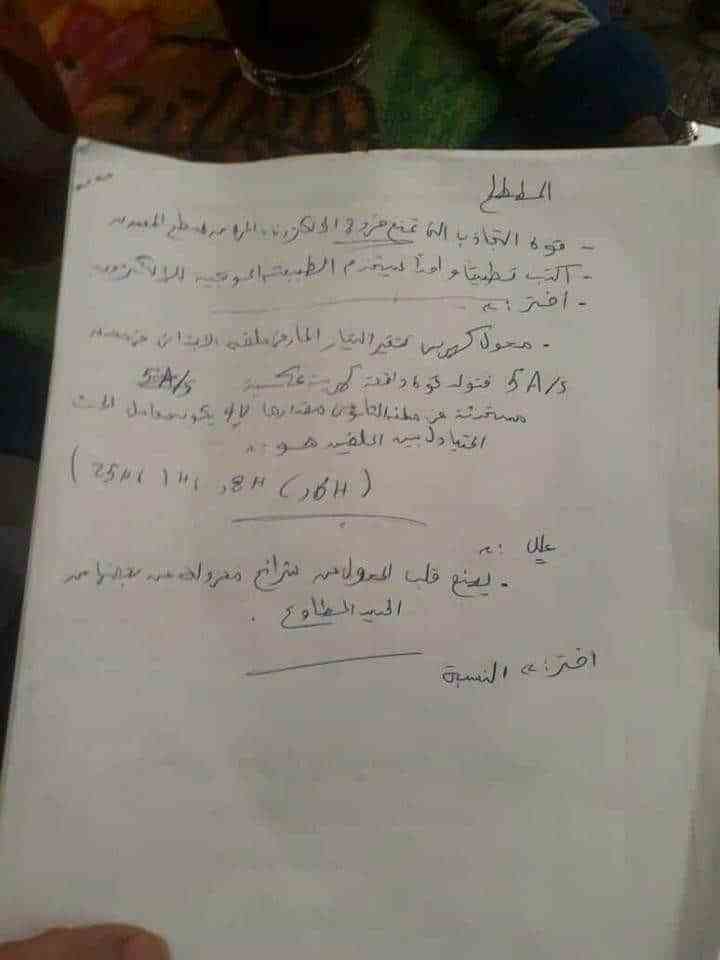 المصطلح
- قوة التجاذب التى تمنع خروج الالكترونات الحرة من سطح المعدن
- اكتب تطبيقا واحدا يستخدم الطبيعة الموجية للإلكترون
- اختر :-
- محول كهربى يتغير التيار المار فى ملفه الابتدائى
5 A/s فتولد قوة دافعة كهربية عكسية 5 A/s
مستحثة فى ملفه الثانوى مقدارها يكون معامل الحث
المتبادل بين الملفين هو :-
( , 8H , 1H , 25H
علل :-
- يصنع قلب المحول من شرائح معزولة عن بعضها من
الحديد المطاوع .
اختر :- النسبة